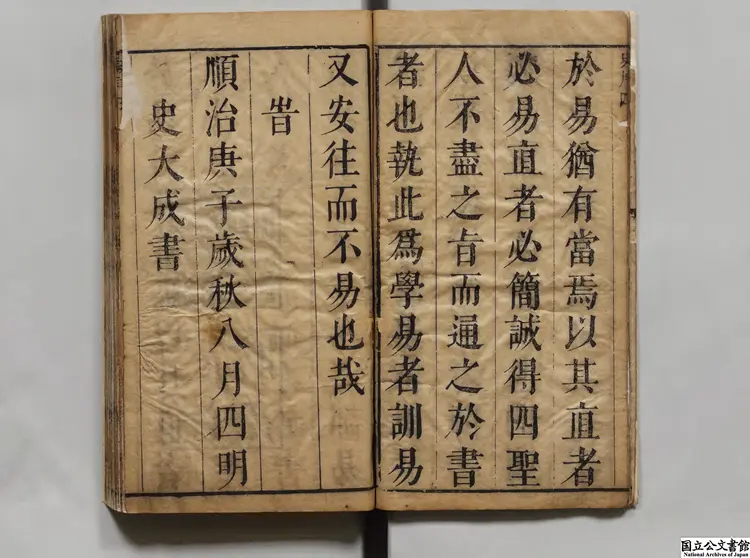 於易猶有當焉以其直者
必易直者必簡誠得四聖
人不盡之旨而通之於書
者也執此為學易者訓易
又安往而不易也哉
旹
順治庚子歲秋八月四明
史大成書
国立公文書館
National Archives of Japan